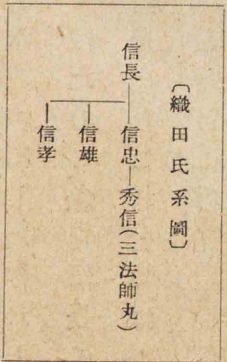 〔織田氏系圖〕
信長―信忠―秀信(三法師丸)
信雄
信孝